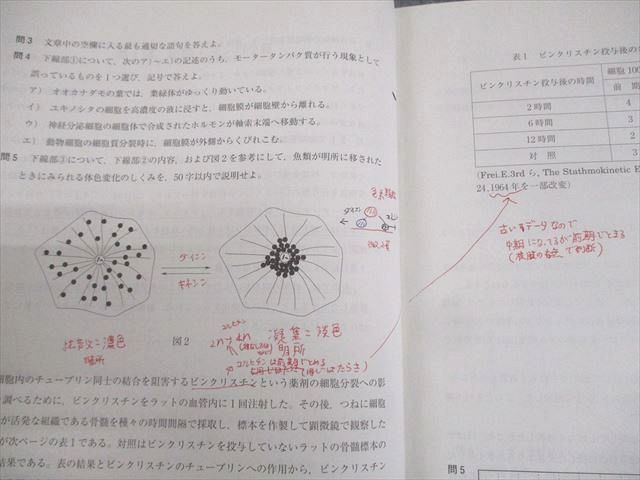 問3 文章中の空欄に入る最も適切な語句を答えよ。
問4 下線部①について，次のア)～エ)の記述のうち，モータータンパク質が行う現象として
誤っているものを1つ選び，記号で答えよ。
ア) オオカナダモの葉では，葉緑体がゆっくり動いている。
イ) ユキノシタの細胞を高濃度の液に浸すと，細胞膜が細胞壁から離れる。
ウ) 神経分泌細胞の細胞体で合成されたホルモンが軸索末端へ移動する。
エ) 動物細胞の細胞質分裂時に，細胞膜が外側からくびれこむ。
問5 下線部③について，下線部②の内容，および図2を参考にして，魚類が明所に移された
ときにみられる体色変化のしくみを，50字以内で説明せよ。
ダイニン
キネシン
拡散＝濃色
暗所
図2
凝集＝淡色
明所
コルヒチンは前期でとめる
細胞内のチューブリン同士の結合を阻害するビンクリスチンという薬剤の細胞分裂への影
調べるために，ビンクリスチンをラットの血管内に1回注射した。その後，つねに細胞
が活発な組織である骨髄を種々の時間間隔で採取し，標本を作製して顕微鏡で観察した
が次ページの表1である。対照はビンクリスチンを投与していないラットの骨髄標本の
結果である。表の結果とビンクリスチンのチューブリンへの作用から，ビンクリスチン
表1 ビンクリスチン投与後の
ビンクリスチン投与後の時間
細胞100
前 期
2時間 4
6時間 3
12時間 2
対 照 3
(Frei.E.3rd ら, The Stathmokinetic E
24,1964年を一部改変)
古いデータなので
中期になってるが前期でとまる
問5